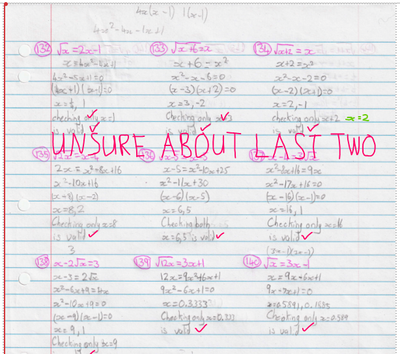 4x(x-1) 1(x-1)
4x²-4x-1x+1
132 √x=2x-1
x=4x²-4x+1
4x²-5x+1=0
(4x+1)(x-1)=0
checking only x=1
is valid
133 √x+6=x
x+6=x²
x²-x-6=0
(x-3)(x+2)=0
x=3,-2
Checking only x=3
is valid
134 √x+2=x
x+2=x²
x²-x-2=0
(x-2)(x+1)=0
x=2,-1
checking only x=2 x=2
is valid
UNSURE ABOUT LAST TWO
135
2x=x²-8x+16
x²-10x+16
(x-8)(x-2)
x=8,2
Checking only x=8
is valid
3
x-5=x²-10x+25
x²-11x+30
(x-6)(x-5)
x=6,5
Checking both
x=6,5 is valid
x²-8x+16=9x
x²-17x+16=0
(x-16)(x-1)=0
x=16,1
Checking only x=16
is valid
138 x-2√x=3
x-3=2√x
x²-6x+9=4x
x²-10x+9=0
(x-9)(x-1)=0
x=9,1
Checking only x=9
139 √12x=3x+1
12x=9x²+6x+1
9x²-6x+1=0
x=0.3333
Checking only x=0.333
is valid
140 √x=3x-1
x=9x²-6x+1
9x²-7x+1=0
Checking only x=0.589
is valid